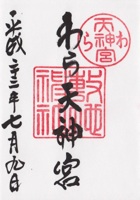 わら天神宮
平成二十二年七月九日
わら
天神宮
敷地神社